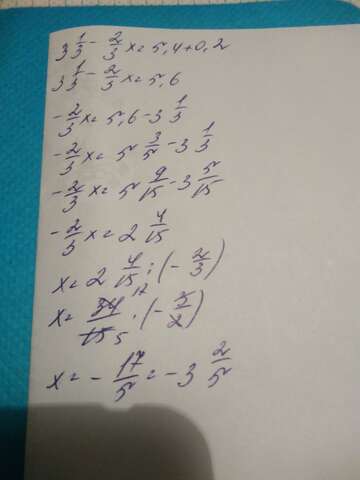 3 1/3 - 2/3 x = 5,4+0,2
3 1/3 - 2/3 x = 5,6
- 2/3 x = 5,6 - 3 1/3
- 2/3 x = 5 3/5 - 3 1/3
- 2/3 x = 5 9/15 - 3 5/15
- 2/3 x = 2 4/15
x = 2 4/15 : (- 2/3)
x = 34 17/15 5 · (- 3/2)
x = - 17/5 = -3 2/5